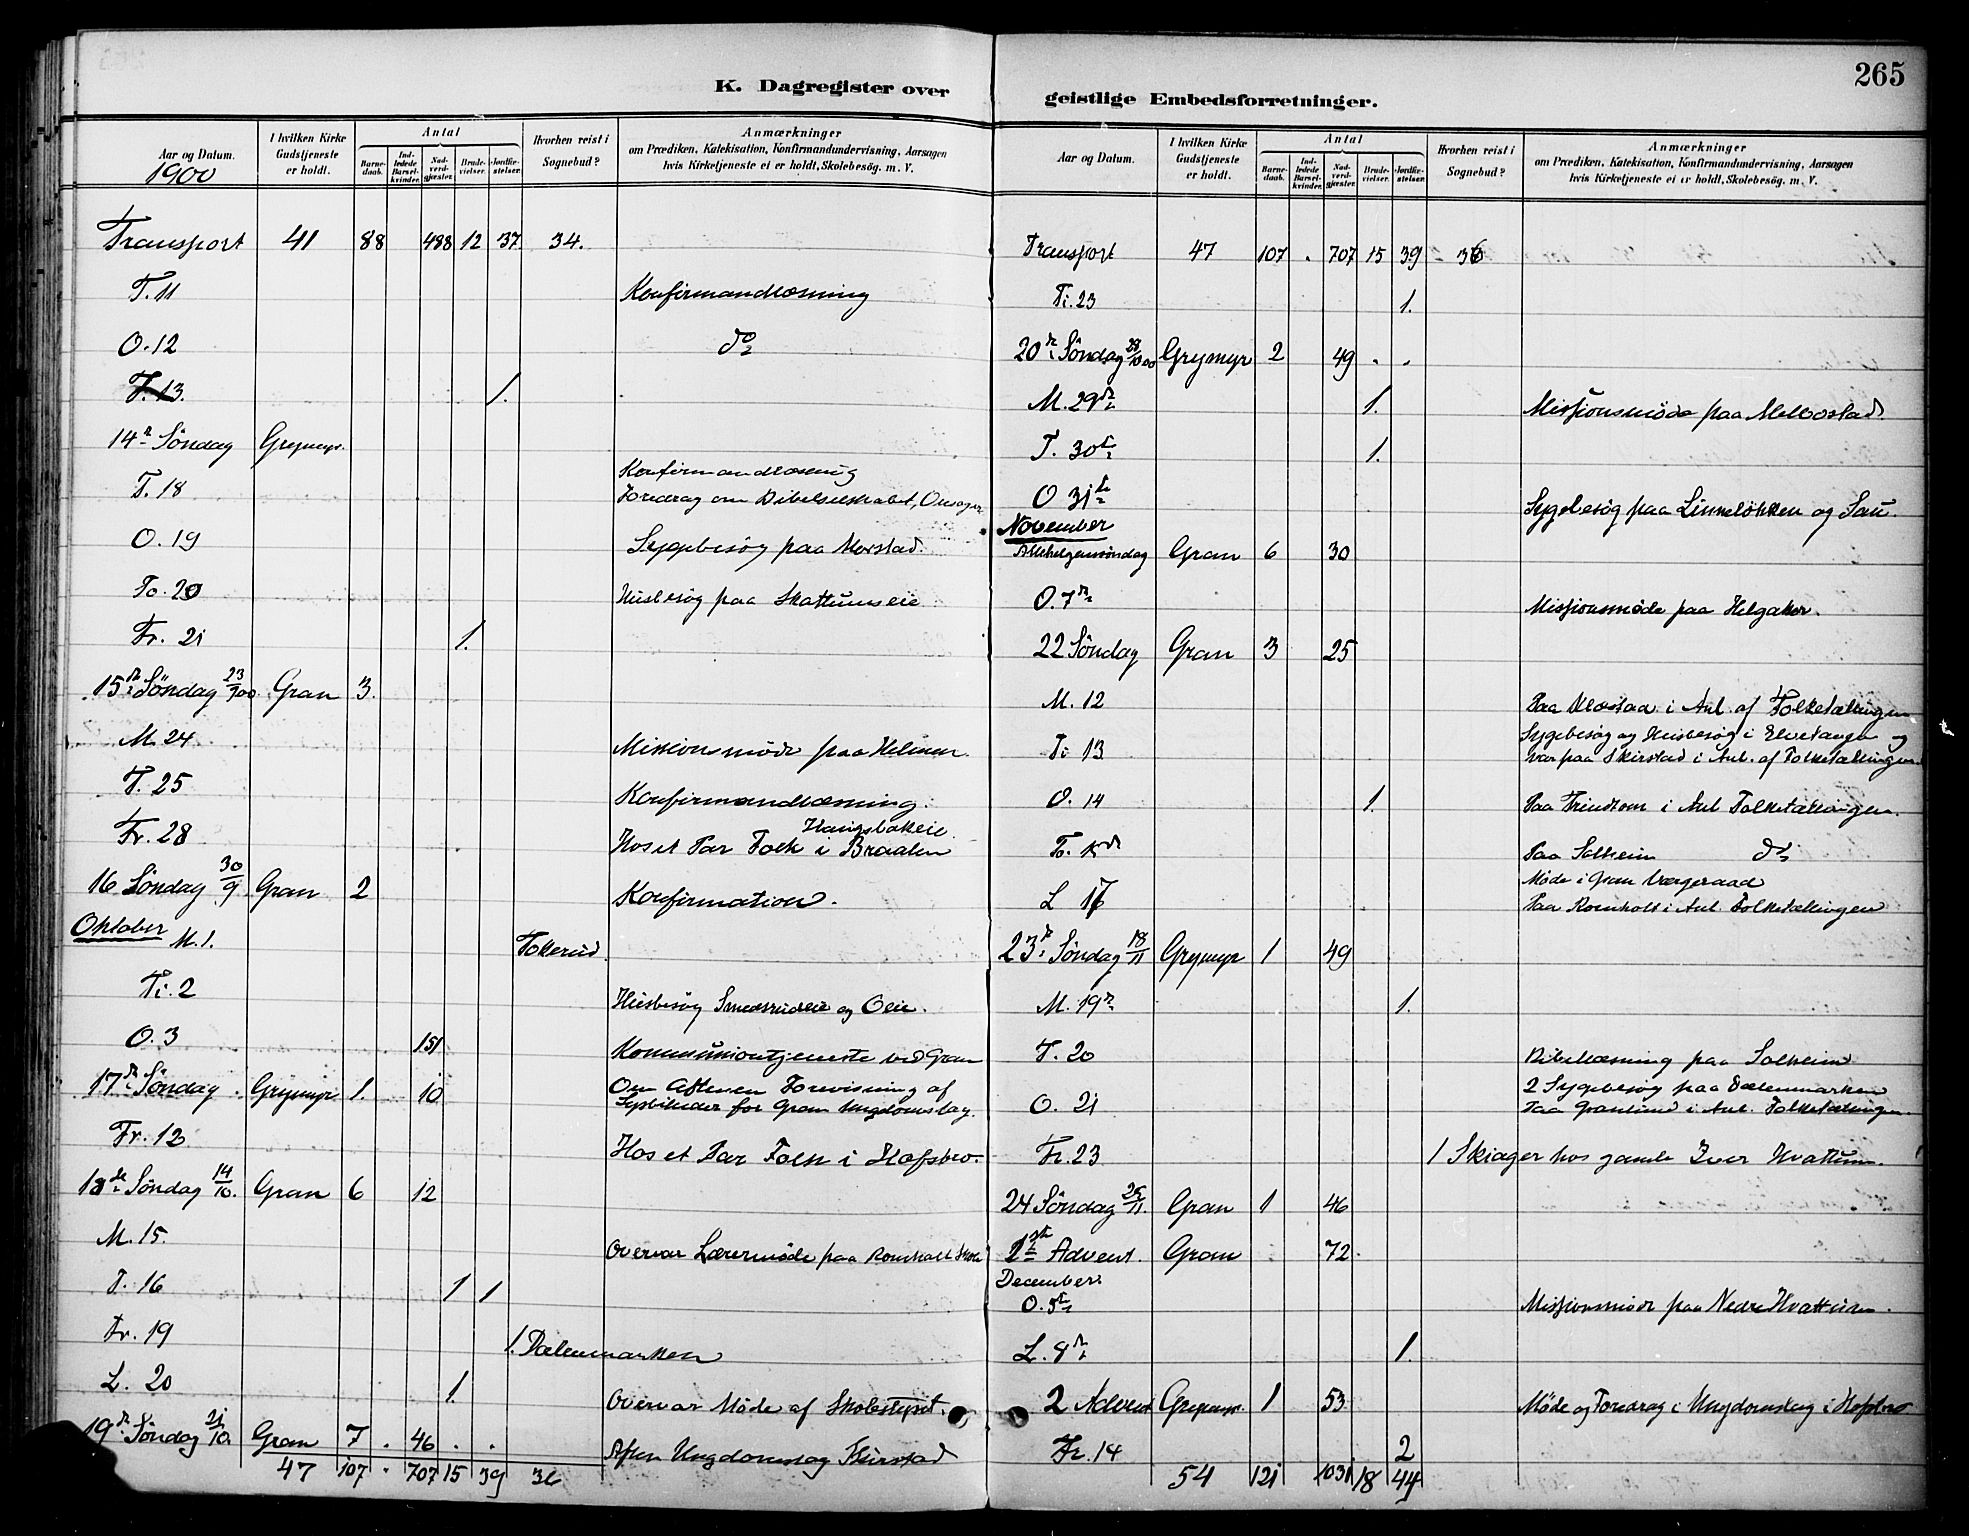 265
K. Dagregister over geistlige Embedsforretninger.
Aar og Datum. 1900
I hvilken Kirke Gudstjeneste er holdt.
Antal
Barnedaab. Indledede Barselkvinder. Nadverdgjæster. Brudevielser. Jordfæstelser.
Hvorhen reist i Sognebud?
Anmærkninger
om Prædiken, Katekisation, Konfirmandundervisning, Aarsagen
hvis Kirketjeneste ei er holdt, Skolebesøg. m. V.
Transport 41 88 488 12 37 34.
T. 11 Konfirmandlæsning
O. 12 do
T. 13. 1.
14n Søndag Grymyr.
T. 18 Konfirmandlæsning
Foredrag om Bibelselskabet,
O. 19 Sygebesøg paa
To. 20 Husbesøg paa Skattumseie
Fr. 21 1.
15n Søndag 23/9 00. Gran 3.
M. 24 Missionsmøde paa Helmen
T. 25 Konfirmandlæsning.
Fr. 28 Hos et Par Folk i Braalen
16 Søndag 30/9 Gran 2 Konfirmation.
Oktober M. 1. Tokerud.
Ti. 2 Husbesøg Smedsrudeie og Oeie.
O. 3 151 Kommuniontjeneste ved Gran
17n Søndag. Grymyr 1. 10 Om Aftenen Forevisning af
Lysbilleder for Gran Ungdomslag.
Fr. 12 Hos et Par Folk i Hofsbro.
18de Søndag 14/10. Gran 6 12
M. 15. Overvar Lærermøde paa Romholt Skole
T. 16 1 1
Fr. 19 1. Dælenmarken
L. 20 1. Overvar Møde af Skolestyret.
19n Søndag 21/10. Gran 7 . 46 . . Aften Ungdomslag Skirstad
47 107 . 707 15 39 36
Aar og Datum.
I hvilken Kirke Gudstjeneste er holdt.
Antal
Barnedaab. Indledede Barselkvinder. Nadverdgjæster. Brudevielser. Jordfæstelser.
Hvorhen reist i Sognebud?
Anmærkninger
om Prædiken, Katekisation, Konfirmandundervisning, Aarsagen
hvis Kirketjeneste ei er holdt, Skolebesøg. m. V.
Transport 47 107 . 707 15 39 36
Ti. 23 1.
20n Søndag 28/10 00 Grymyr 2 49 . .
M. 29n 1. Missionsmøde paa Melbostad
T. 30te 1.
O 31te Sygebesøg paa Linneløkken og Sau.
November
Allehelgensøndag Gran 6 30
O. 7n Missionsmøde paa Helgaker.
22 Søndag Gran 3 25
M. 12 Paa i Anl. af Folketællingen
Ti 13 Sygebesøg og Husbesøg i Elvetangen og
var paa Skirstad i Anl. af Folketællingen.
O. 14 1. Paa i Anl Folketællingen.
To. 15de Paa Solheim do
Møde i Gran Værgeraad
L 17 Paa Romholt i Anl. Folketællingen
23n Søndag 18/11 Grymyr 1 49
M. 19n 1.
T. 20 Bibellæsning paa Solheim
2 Sygebesøg paa Dælenmarken
O. 21 Paa Granlund i Anl. Folketællingen.
Fr. 23 1 Skiager hos gamle Iver Hvattum.
24 Søndag 25/11. Gran 1 46
1ste Advent. Gran 72.
December.
O. 5te Missionsmøde paa Nedre Hvattum.
L. 8n 1.
2 Advent Grymyr. 1 53 Møde og Foredrag i Ungdomslag i Hofsbro
Fr. 14 2
54 121 1031 18 44